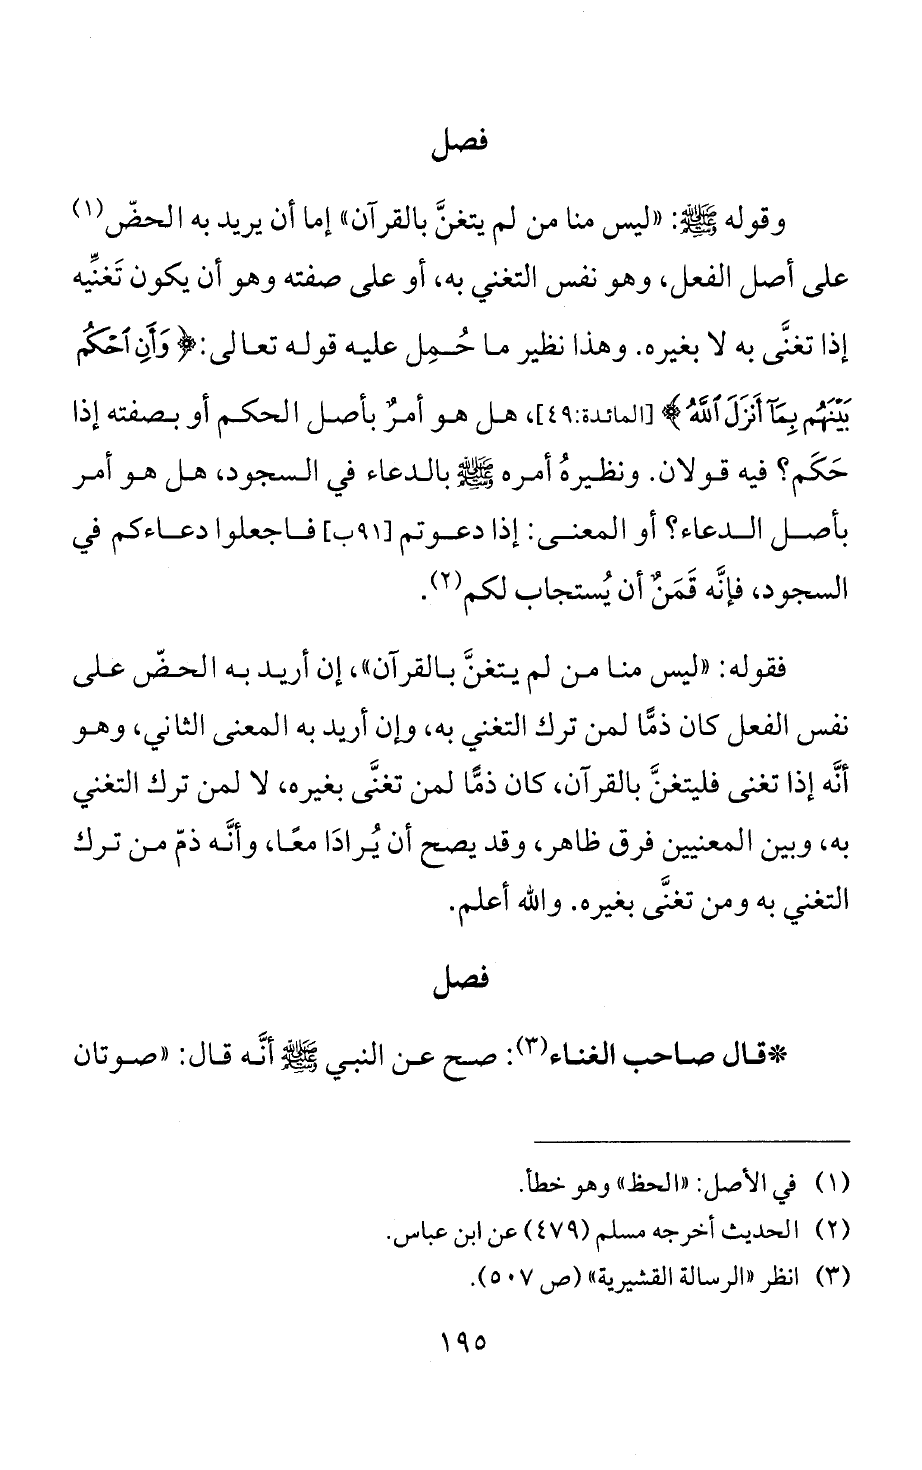 فصل
وقوله ﷺ: «ليس منا من لم يتغنَّ بالقرآن» إما أن يريد به الحضّ(١)
على أصل الفعل، وهو نفس التغني به، أو على صفته وهو أن يكون تَغنِّيه
إذا تغنَّى به لا بغيره. وهذا نظير ما حُمِل عليه قوله تعالى: ﴿وَأَنِ ٱحْكُم
بَيْنَهُم بِمَآ أَنزَلَ ٱللَّهُ﴾ [المائدة:٤٩]، هل هو أمرٌ بأصل الحكم أو بصفته إذا
حَكَم؟ فيه قولان. ونظيرهُ أمره ﷺ بالدعاء في السجود، هل هو أمر
بأصل الدعاء؟ أو المعنى: إذا دعوتم [٩١ب] فاجعلوا دعاءكم في
السجود، فإنَّه قَمَنٌ أن يُستجاب لكم(٢).
فقوله: «ليس منا من لم يتغنَّ بالقرآن»، إن أريد به الحضّ على
نفس الفعل كان ذمًّا لمن ترك التغني به، وإن أريد به المعنى الثاني، وهو
أنَّه إذا تغنى فليتغنَّ بالقرآن، كان ذمًّا لمن تغنَّى بغيره، لا لمن ترك التغني
به، وبين المعنيين فرق ظاهر، وقد يصح أن يُرادَا معًا، وأنَّه ذمّ من ترك
التغني به ومن تغنَّى بغيره. والله أعلم.
فصل
*قال صاحب الغناء(٣): صح عن النبي ﷺ أنَّه قال: «صوتان
(١) في الأصل: «الحظ» وهو خطأ.
(٢) الحديث أخرجه مسلم (٤٧٩) عن ابن عباس.
(٣) انظر «الرسالة القشيرية» (ص ٥٠٧).
١٩٥